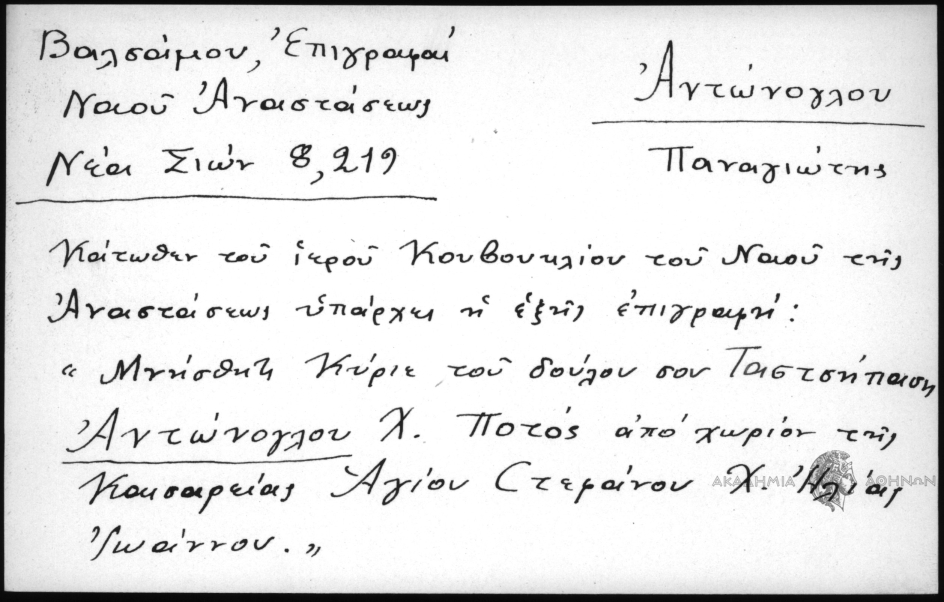 Βαλσάμου, Ἐπιγραφαί
Ναοῦ Ἀναστάσεως
Νέα Σιών 8, 219
Ἀντώνογλου
Παναγιώτης
Κάτωθεν τοῦ ἱεροῦ Κουβουκλίου τοῦ Ναοῦ τῆς
Ἀναστάσεως ὑπάρχει ἡ ἑξῆς ἐπιγραφή:
"Μνήσθητι Κύριε τοῦ δούλου σου Ταστσήπαση
Ἀντώνογλου Χ. Ποτός ἀπό χωρίον τῆς
Καισαρείας Ἁγίου Στεφάνου Χ. Ἠλίας
Ἰωάννου."
ΑΚΑΔΗΜΙΑ ΑΘΗΝΩΝ